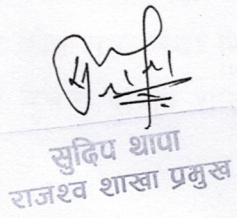 सुदिप थापा
राजश्व शाखा प्रमुख